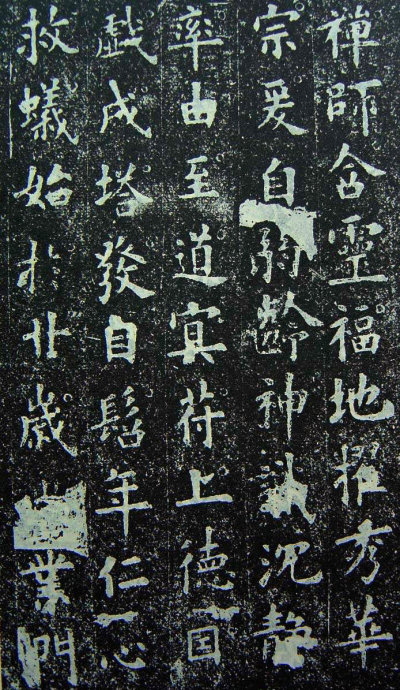 禪師含靈福地擢秀華
宗爰自弱齡神識沉静
率由至道冥苻上徳因
戯成塔發自髫年仁心
救蟻始於廿歲業門